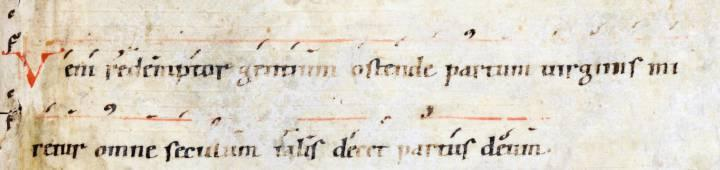 Veni redemptor gentium ostende partum virginis mi
retur omne seculum talis decet partus deum